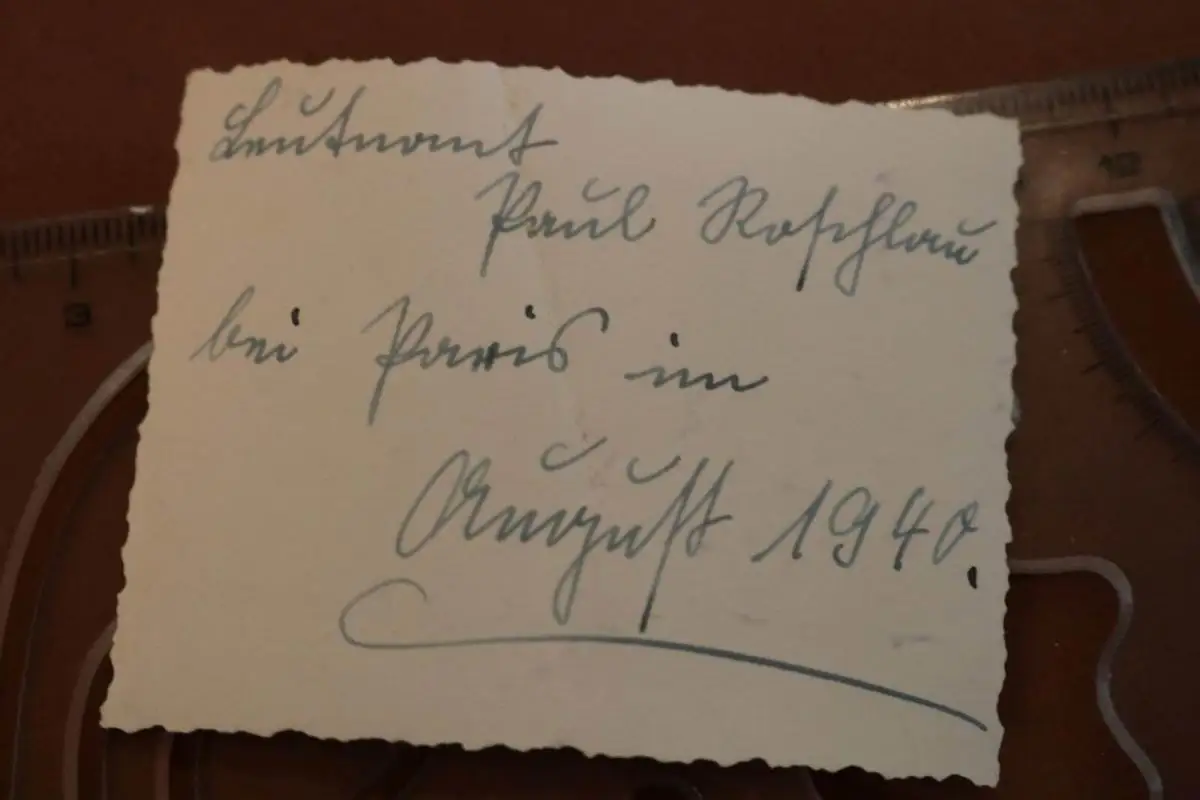 Leutnant
Paul Roschlau
bei Paris im
August 1940.
3